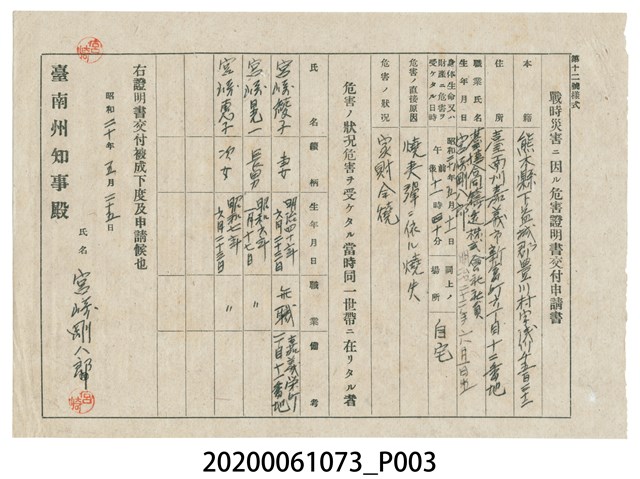 第十二號樣式
戰時災害ニ因ル危害證明書交付申請書
本籍 熊本縣下益城郡豊川村字浅川千五百三十二
住所 臺南州嘉義市新富町六丁目十二番地
職業氏名 臺湾合同鑄造株式會社社員
生年月日 宮崎剛八郎 明治三十二年六月一日生
身体生命又ハ財産ニ危害ヲ受ケタル日時 昭和二十年 午前後十一時四十分 同上ノ場所 自宅
危害ノ直接原因 燒夷彈ニ依ル燒失
危害ノ狀況 家財全燒
危害ノ狀況危害ヲ受ケタル當時同一世帶ニ在リタル者
氏名 續柄 生年月日 職業 備考
宮崎 妻 明治四十年六月二十三日 無職 嘉義栄町二丁目十二番地
宮崎晃一 長男 昭和六年一月十七日 〃
宮崎惠子 次女 昭和七年六月二十三日 〃
右證明書交付被成下度及申請候也
昭和二十年五月二十五日
氏名 宮崎剛八郎
臺南州知事殿
20200061073_P003